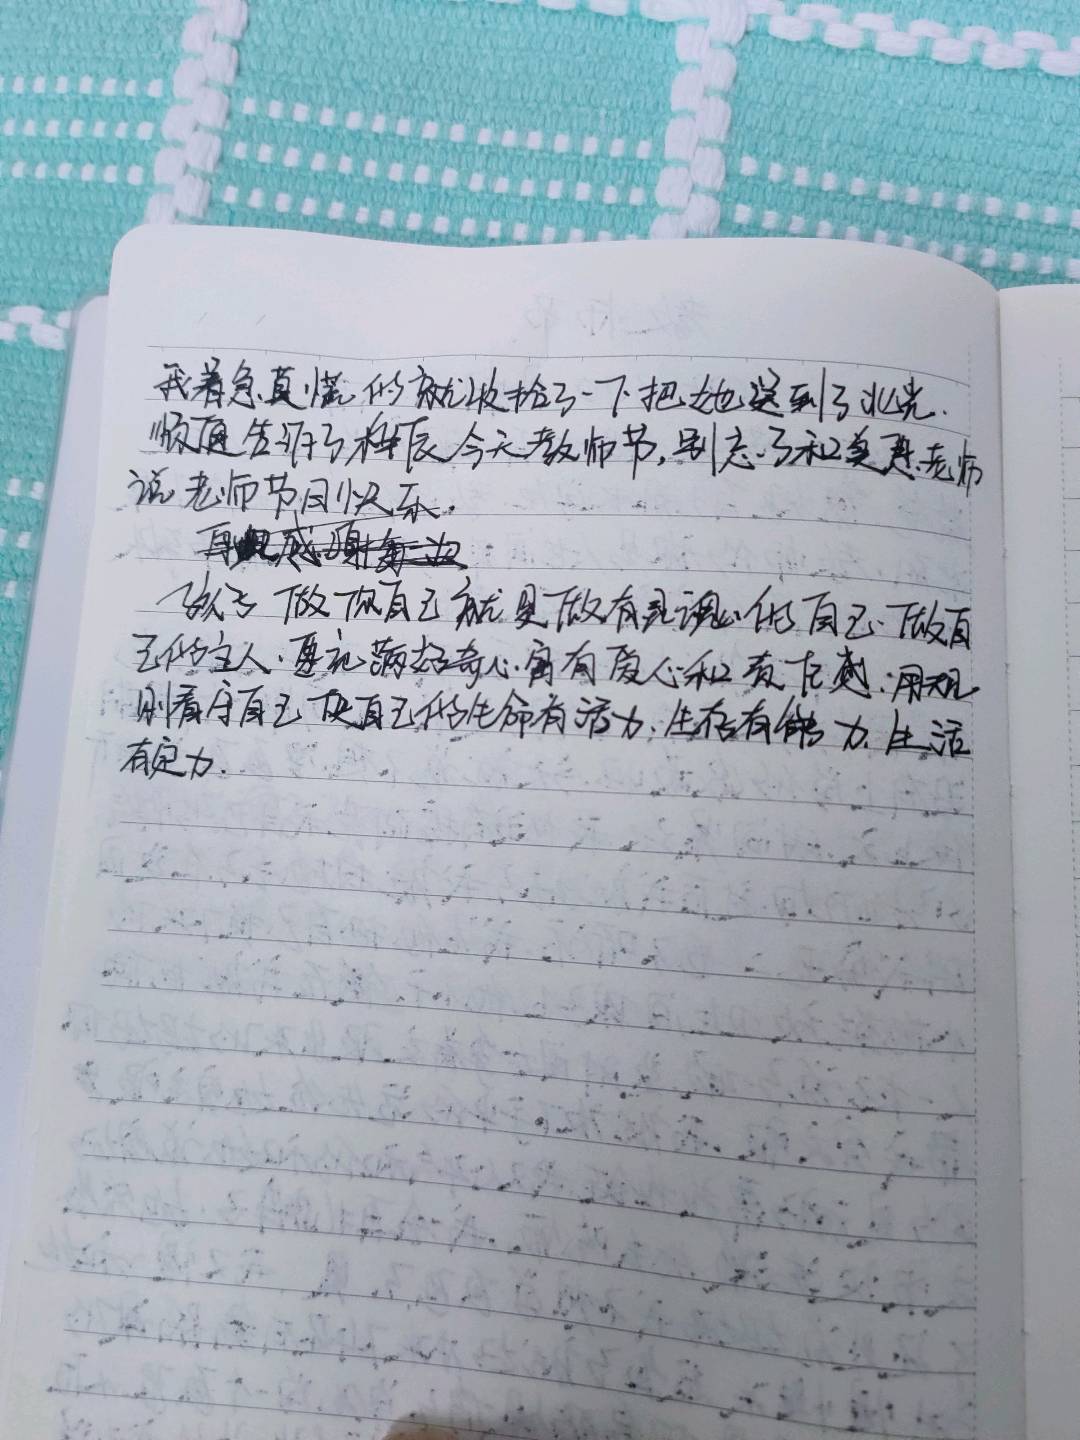 我着急真慌的就收拾了一下把她送到了北党.
顺便告诉了梓辰今天教师节,别忘了和美惠老师
说老师节日快乐.
再 感谢每一次
孩子 做你自己 就是做有灵魂的自己.做自
己的主人.要充满好奇心.富有爱心和责任感.用规
则看守自己使自己的生命有活力.生存有能力.生活
有定力.